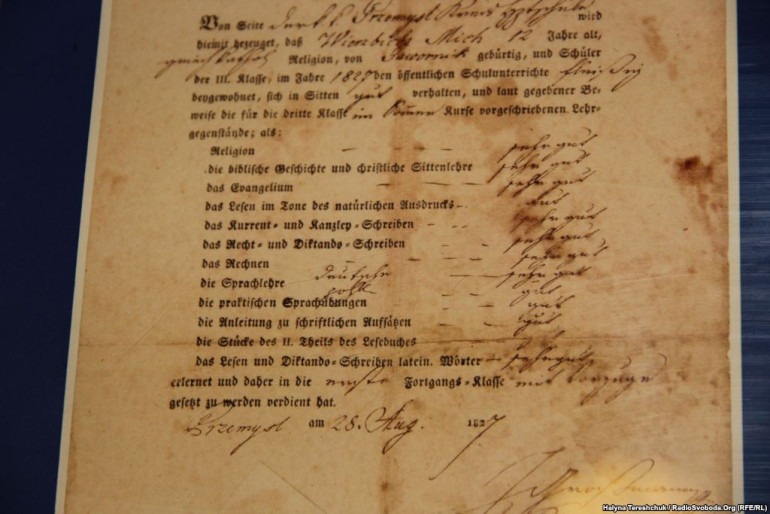 Von Seite der k. k. Przemysl Kreis Hptschule wird
hiemit bezeuget, daß Wierzbicki Mich 12 Jahre alt,
griechkathol Religion, von Jawornik gebürtig, und Schüler
der III. Klasse, im Jahre 1827 den öffentlichen Schulunterrichte fleißig
beygewohnet, sich in Sitten gut verhalten, und laut gegebener Be-
weise die für die dritte Klasse im Sommer Kurse vorgeschriebenen Lehr-
gegenstände; als:
Religion - - - - sehr gut
die biblische Geschichte und christliche Sittenlehre sehr gut
das Evangelium - - - sehr gut
das Lesen im Tone des natürlichen Ausdrucks - gut
das Kurrent- und Kanzley-Schreiben - - sehr gut
das Recht- und Diktando-Schreiben - - sehr gut
das Rechnen - - - sehr gut
die Sprachlehre deutsche - - sehr gut
poln - gut
die praktischen Sprachübungen - - gut
die Anleitung zu schriftlichen Aufsätzen - - gut
die Stücke des II. Theils des Lesebuches
das Lesen und Diktando-Schreiben latein. Wörter - sehr gut
erlernet und daher in die erste Fortgangs-Klasse mit Vorzuge
gesetzt zu werden verdient hat.
Przemysl am 28. Aug. 1827
Halyna Tereshchuk / RadioSvoboda.Org (RFE/RL)